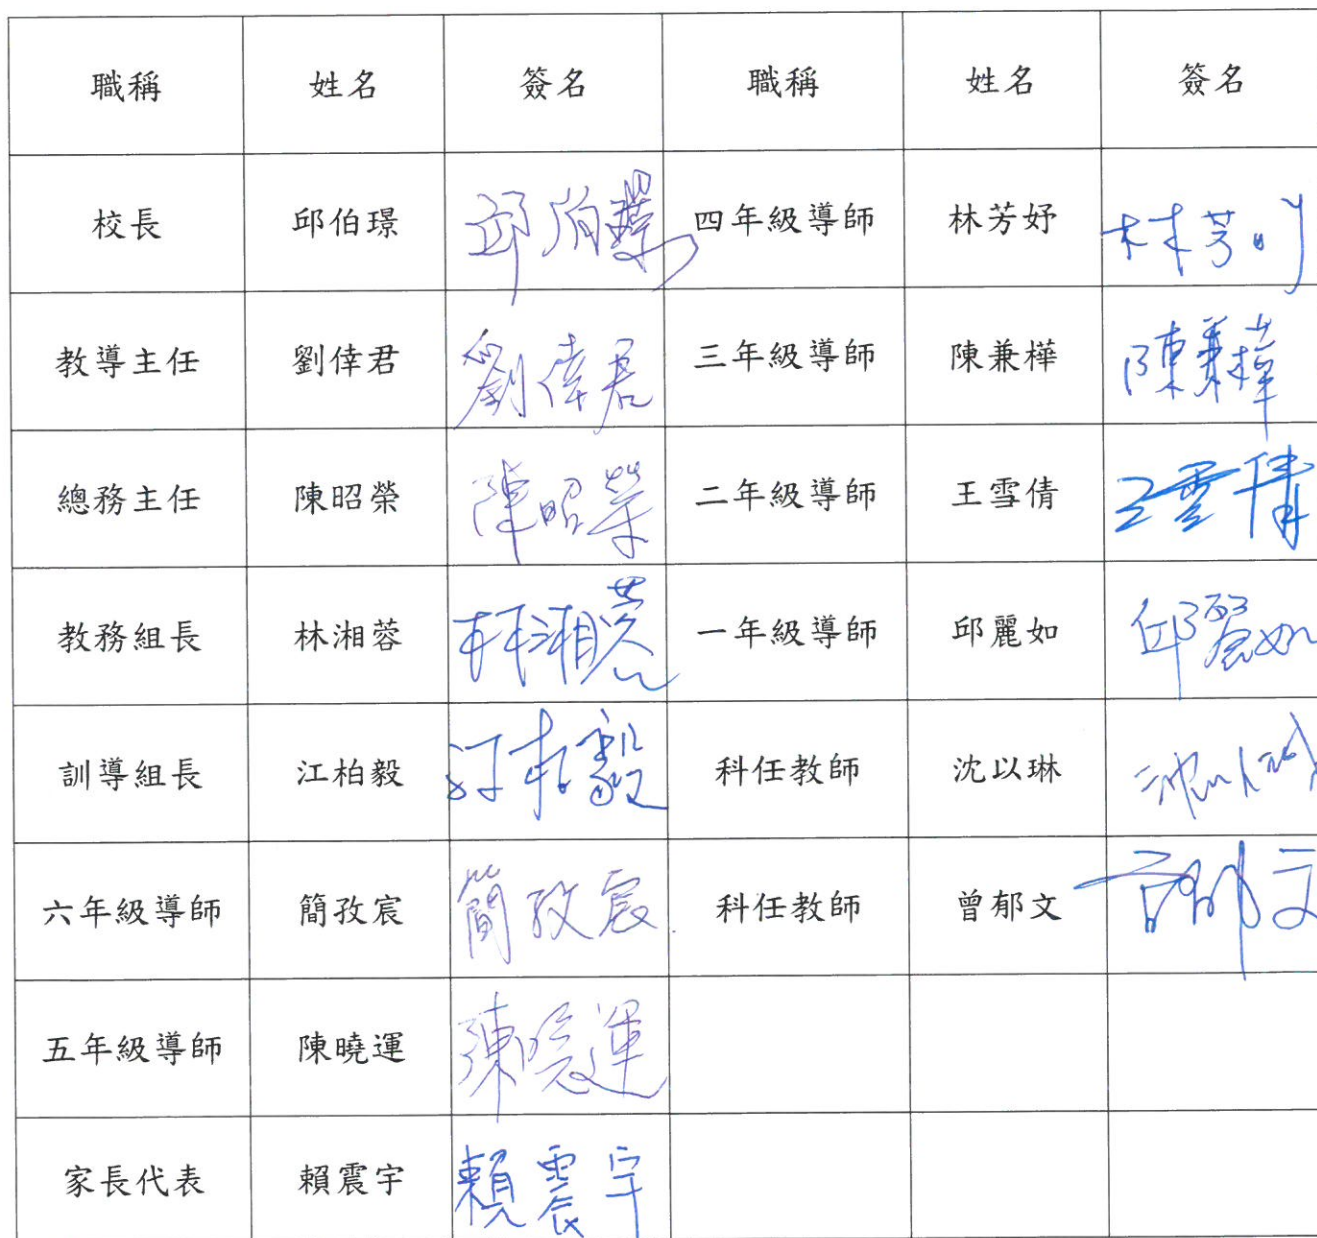 職稱 姓名 簽名 職稱 姓名 簽名
校長 邱伯璟 邱伯璟 四年級導師 林芳妤 林芳妤
教導主任 劉倖君 劉倖君 三年級導師 陳兼樺 陳兼樺
總務主任 陳昭榮 陳昭榮 二年級導師 王雪倩 王雪倩
教務組長 林湘蓉 林湘蓉 一年級導師 邱麗如 邱麗如
訓導組長 江柏毅 江柏毅 科任教師 沈以琳 沈以琳
六年級導師 簡孜宸 簡孜宸 科任教師 曾郁文 曾郁文
五年級導師 陳曉運 陳曉運
家長代表 賴震宇 賴震宇